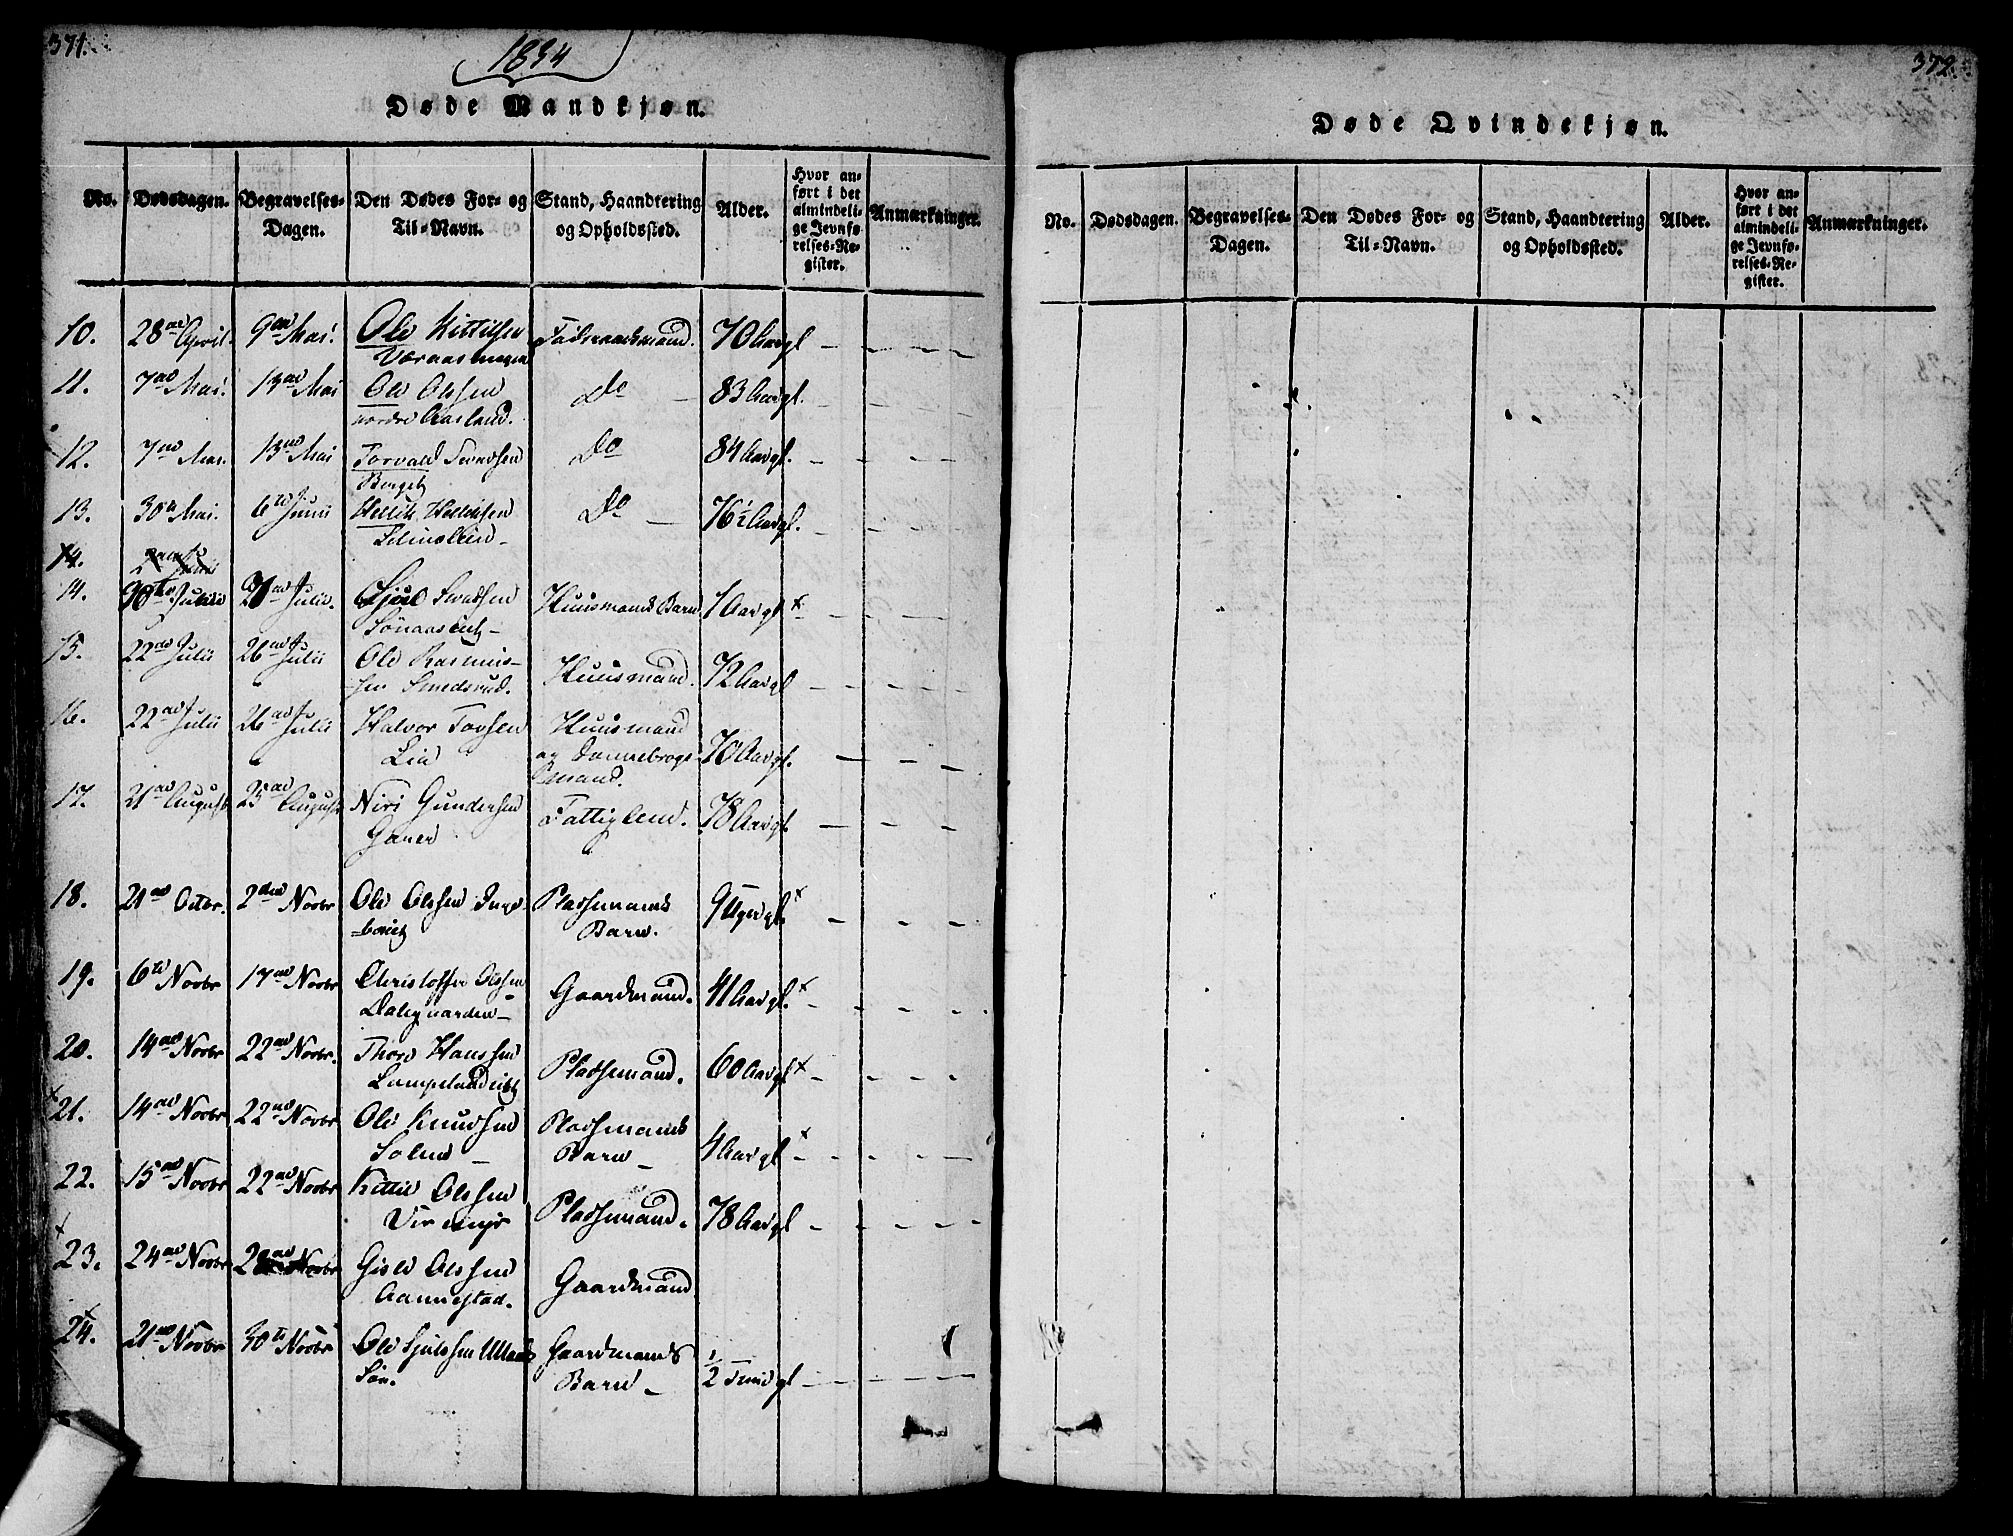 371.
1834
Døde Mandkjøn.
No. Dødsdagen. Begravelses-Dagen. Den Dødes For- og Til-Navn. Stand, Haandtering og Opholdssted. Alder. Hvor anført i det almindelige Jevnførelses-Register. Anmærkninger.
10. 28de April. 9de Mai. Ole Kittilsen Føderaadsmand. 70 Aar gl - - - -
11. 7de Mai. 13de Mai Ole Olssen Do - 83 Aar gl. - - - -
nordre Aasland.
12. 7de Mai. 13de Mai Torvald Do 84 Aar gl. - - - -
Berget
13. 30te Mai. 6te Junii Hellik Helliksen Do - 76½ Aar gl. - - - -
14.
14. Julii Julii. Gjul Huusmands Barn 1 Aar gl x
15. 22de Julii 26de Julii Ole Rasmus-
sen Smedsrud. Huusmand. 72 Aar gl - - - -
16. 22de Julii 26de Julii Halvor Tovsen Huusmand
Lia og Dannebrogs- 70 Aar gl. - - -
mand.
17. 21de August 25de August Niri Gundersen Fattiglem. 78 Aar gl. - - -
18. 21de Octbr. 2den Novbr Ole Olssen Inge- Pladsmands 9 Uger gl. x
Barn. - - -
19. 6te Novbr 17de Novbr Christoffer Olssen Gaardmand. 41 Aar gl. x
Dalsgaarden - - - - -
20. 14de Novbr 22de Novbr. Thore Hanssen Pladsmand. 60 Aar gl x - - - -
x 21. 14de Novbr 22de Novbr Ole Knudsen Pladsmands
Barn - 4 Aar gl x
22. 15de Novbr 22de Novbr Kittil Olssen Pladsmand. 78 Aar gl - - - -
x 23. 24de Novbr Novbr Gisle Olssen Gaardmand
Aannestad.
x 24. 21de Novbr 30te Novbr Ole Gaardmands
Søn. Barn - ½ Time gl - - - -
372.
Døde Qvindekjøn.
No. Dødsdagen. Begravelses-Dagen. Den Dødes For- og Til-Navn. Stand, Haandtering og Opholdssted. Alder. Hvor anført i det almindelige Jevnførelses-Register. Anmærkninger.